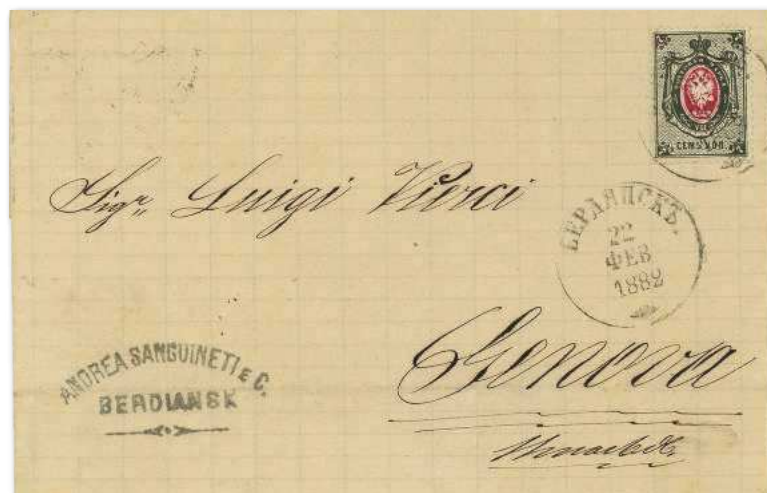 СЕМЬ КОП.
Sigr. Luigi Vierci
БЕРДЯНСКЪ.
22
ФЕВ
1882
ANDREA SANGUINETI e C.
BERDIANSK
Genova